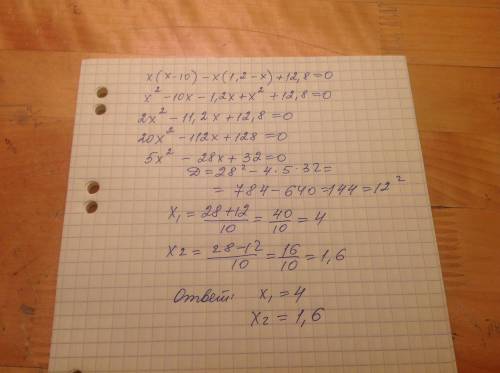 x(x-10)-x(1,2-x)+12,8=0
x²-10x-1,2x+x²+12,8=0
2x²-11,2x+12,8=0
20x²-112x+128=0
5x²-28x+32=0
D=28²-4·5·32=
=784-640=144=12²
x₁=28+12/10=40/10=4
x2=28-12/10=16/10=1,6
Ответ: x₁=4
x₂=1,6